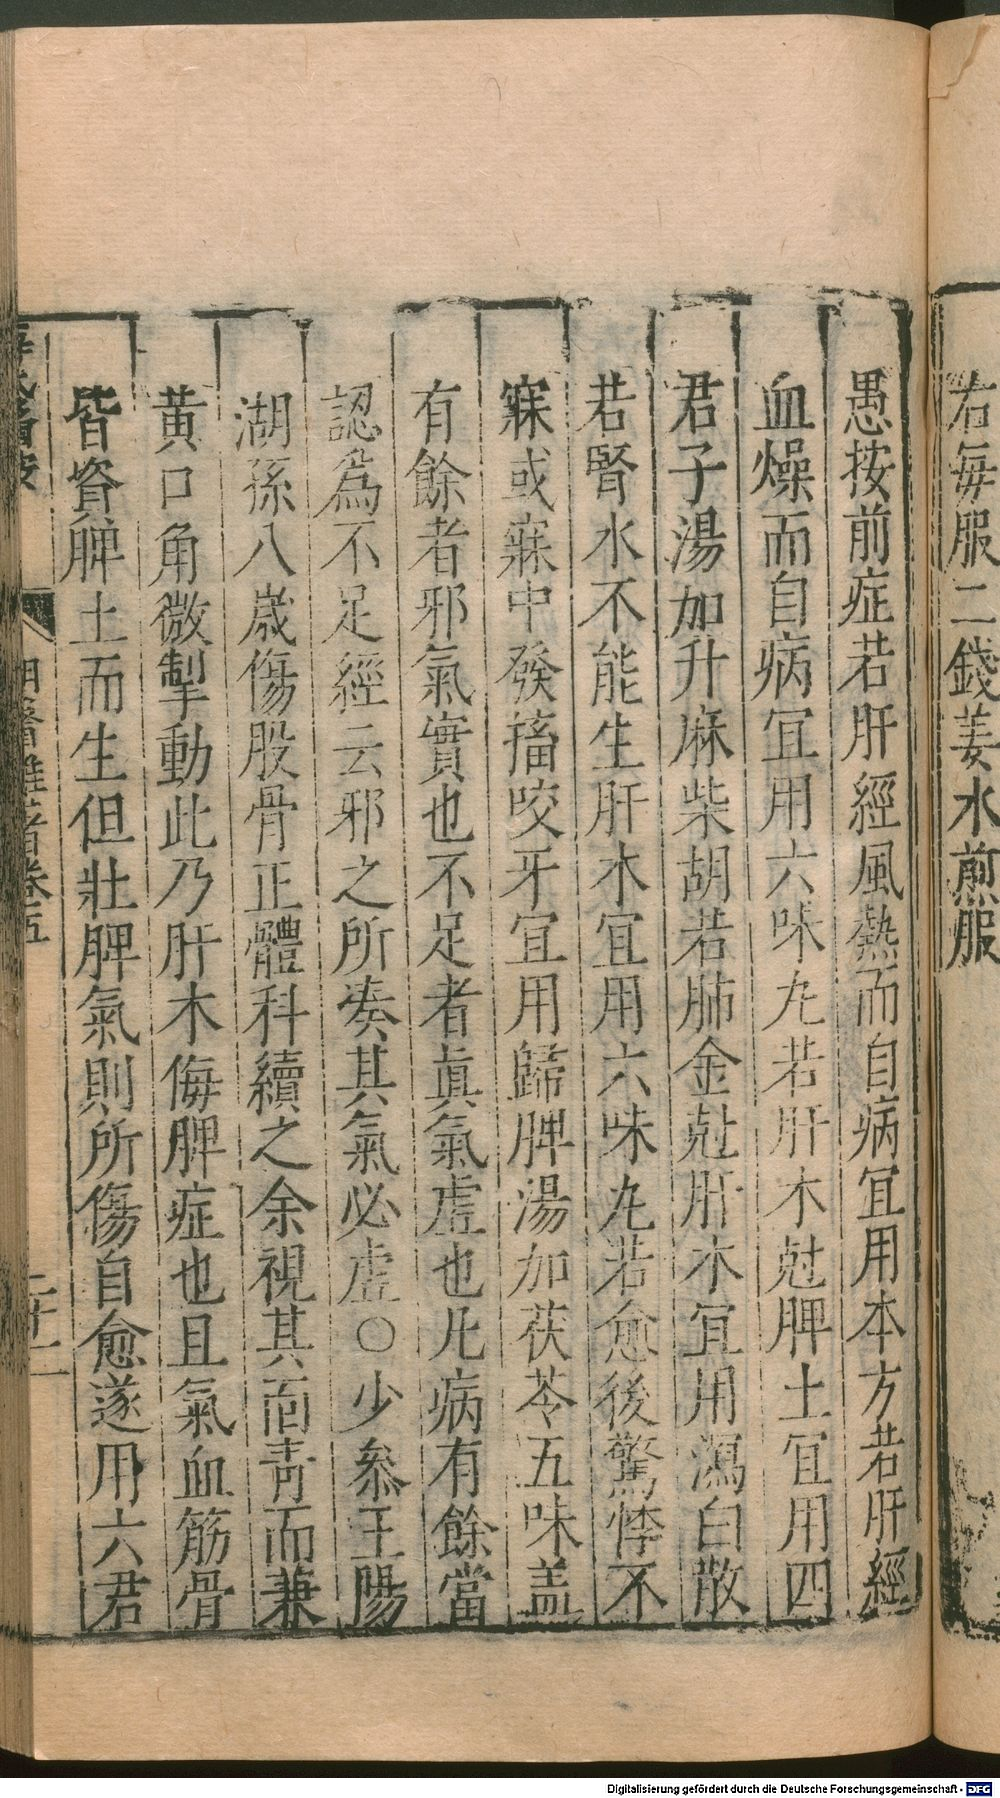 右每服二錢姜水煎服
愚按前症若肝經風熱而自病宜用本方若肝經
血燥而自病宜用六味丸若肝木尅脾土宜用四
君子湯加升麻柴胡若肺金尅肝木宜用瀉白散
若腎水不能生肝木宜用六味丸若愈後驚悸不
寐或寐中發搐咬牙宜用歸脾湯加茯苓五味盖
有餘者邪氣實也不足者眞氣虛也凡病有餘當
認爲不足經云邪之所凑其氣必虛○少叅王陽
湖孫八歲傷股骨正體科續之余視其面靑而兼
黃口角微掣動此乃肝木侮脾症也且氣血筋骨
皆資脾土而生但壯脾氣則所傷自愈遂用六君
明醫雜著卷五
二十二
Digitalisierung gefördert durch die Deutsche Forschungsgemeinschaft - DFG